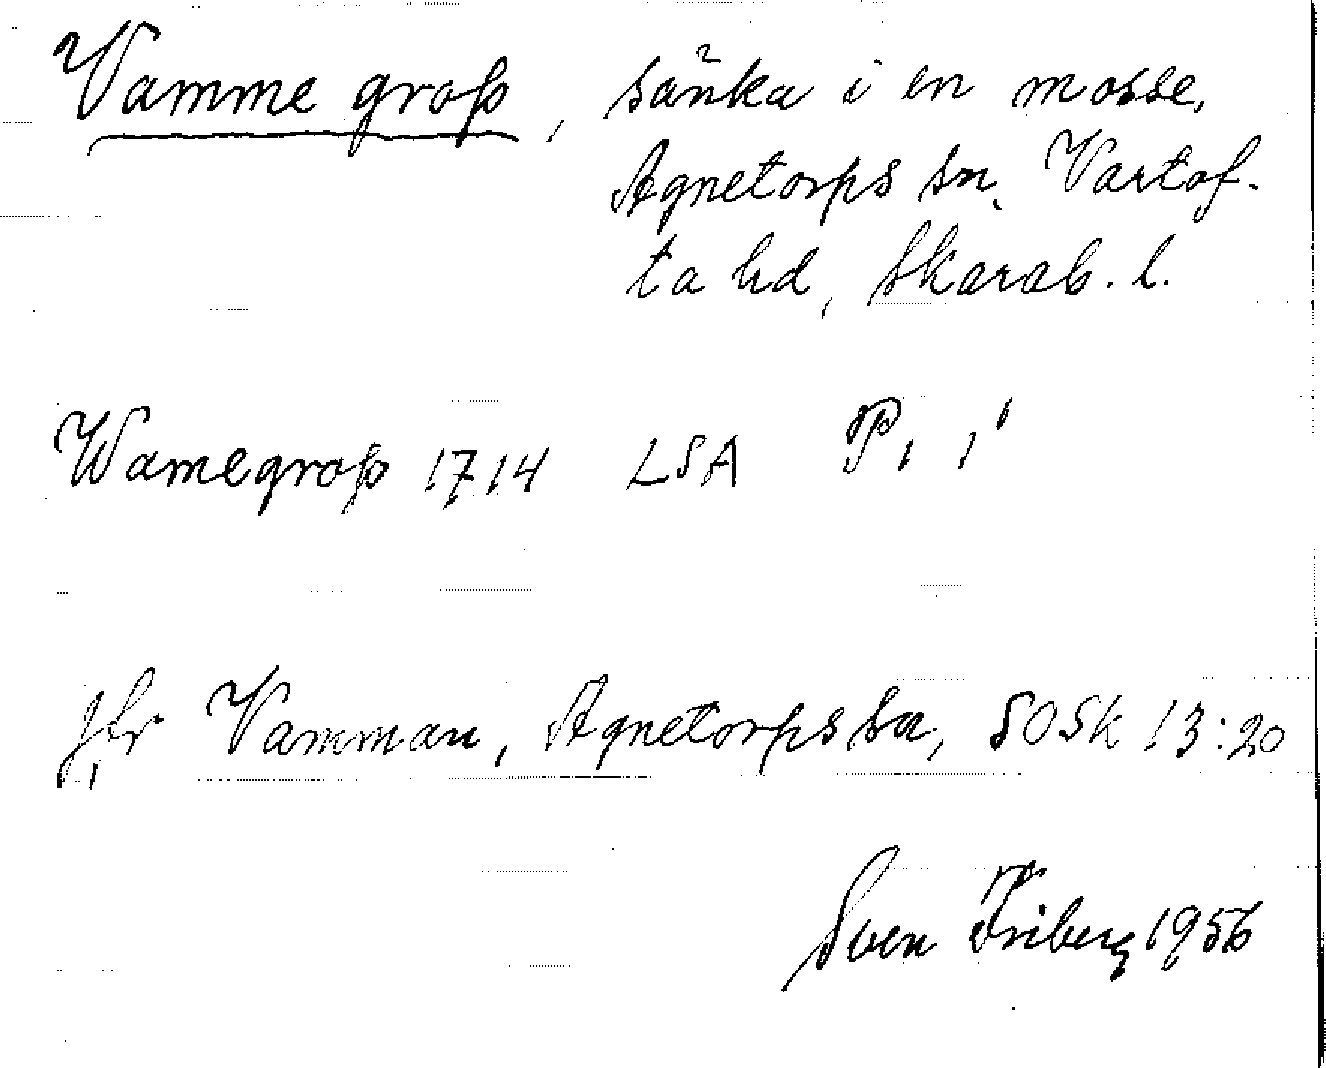 Vamme grop, sänka i en mosse,
Agnetorps sn, Vartof-
ta hd, Skarab. l.
Wamegrop 1714 LSA P, 1'
Jfr Vamman, Agnetorps sn, SOSk 13:20
Sven Friberg 1956